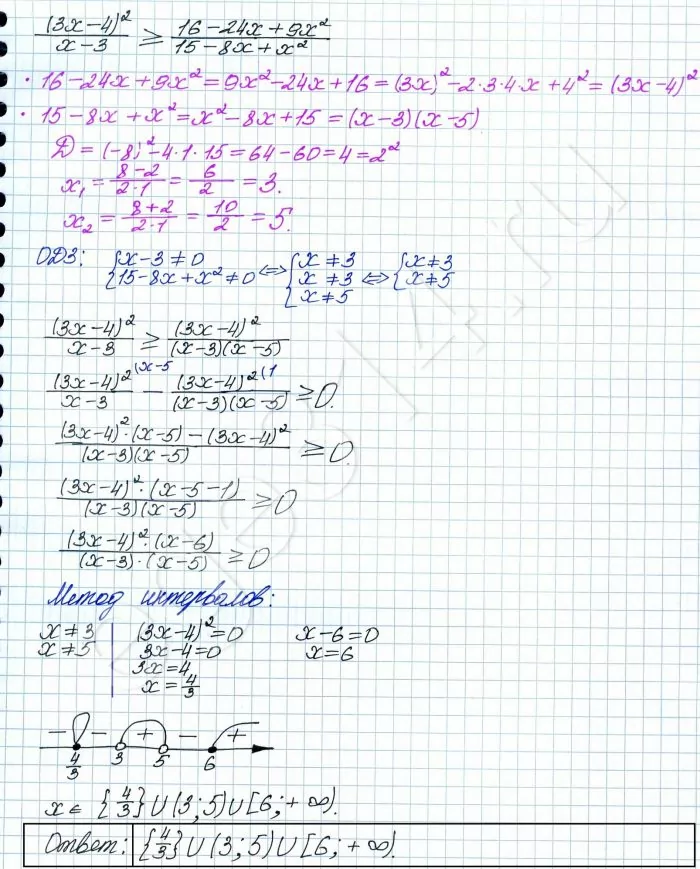 (3x-4)²/(x-3) ≥ (16-24x+9x²)/(15-8x+x²)
· 16-24x+9x² = 9x²-24x+16 = (3x)²-2·3·4·x+4² = (3x-4)²
· 15-8x+x² = x²-8x+15 = (x-3)(x-5)
D = (-8)²-4·1·15 = 64-60 = 4 = 2²
x₁ = (8-2)/(2·1) = 6/2 = 3.
x₂ = (8+2)/(2·1) = 10/2 = 5.
ОДЗ: {x-3≠0 {15-8x+x²≠0 ⇔ {x≠3 {x≠3 {x≠5 ⇔ {x≠3 {x≠5
(3x-4)²/(x-3) ≥ (3x-4)²/((x-3)(x-5))
(3x-4)²⁽ˣ⁻⁵/(x-3) - (3x-4)²⁽¹/((x-3)(x-5)) ≥ 0.
((3x-4)²·(x-5)-(3x-4)²)/((x-3)(x-5)) ≥ 0.
((3x-4)²·(x-5-1))/((x-3)(x-5)) ≥ 0
((3x-4)²·(x-6))/((x-3)·(x-5)) ≥ 0
Метод интервалов:
x≠3 | (3x-4)²=0 x-6=0
x≠5 | 3x-4=0 x=6
3x=4
x=4/3
- - + - +
4/3 3 5 6
x ∈ {4/3}∪(3;5)∪[6;+∞).
Ответ: {4/3}∪(3;5)∪[6;+∞).